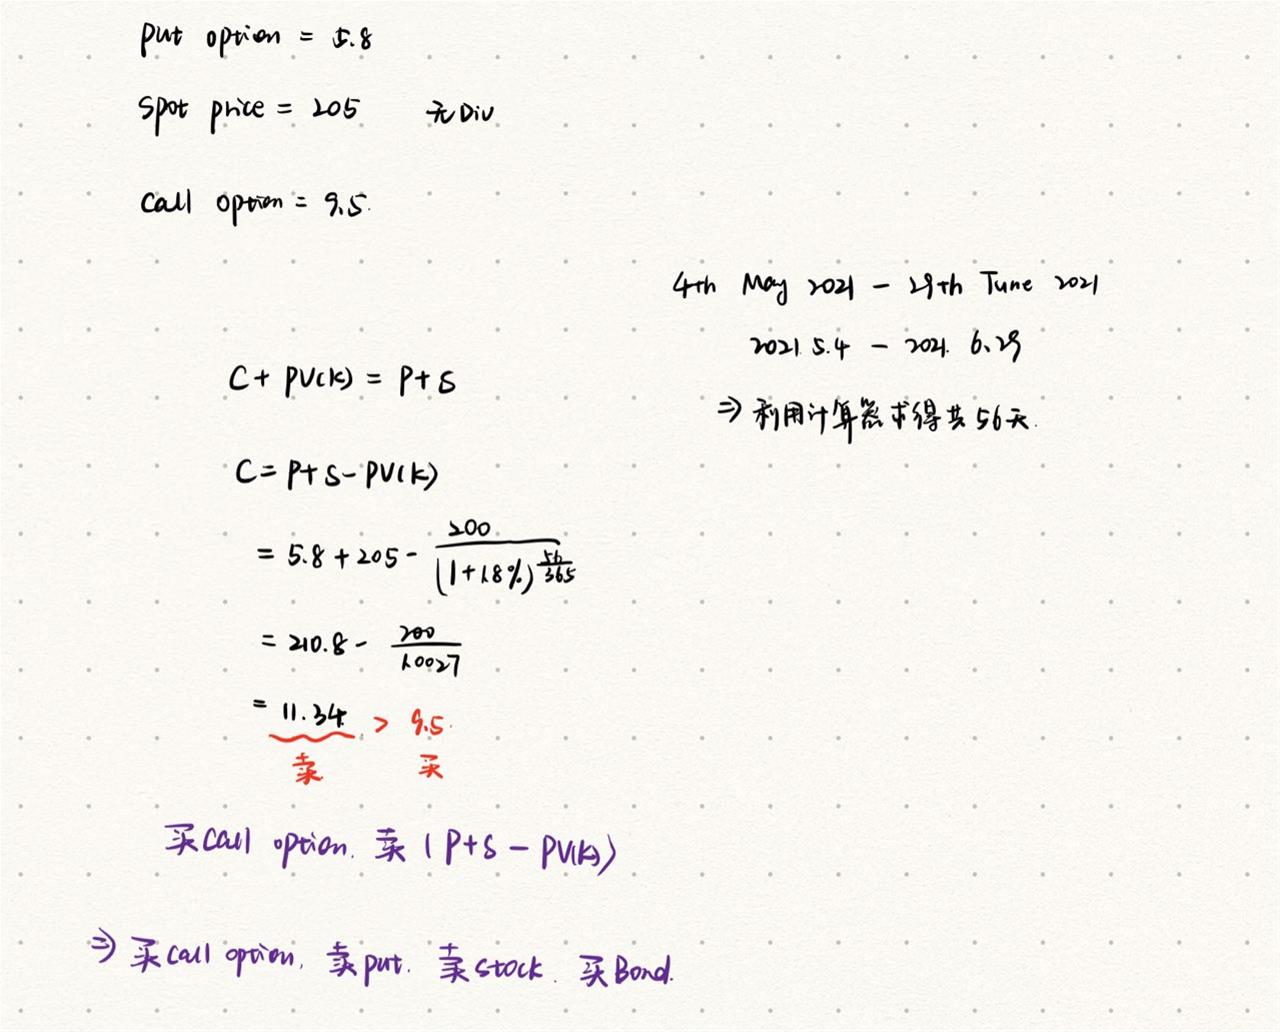 Put option = 5.8
Spot price = 205 无Div
Call option = 9.5.
4th May 2021 - 29th June 2021
2021.5.4 - 2021.6.29
⇒ 利用计算器求得共56天.
C + PV(K) = P+S
C = P+S-PV(K)
= 5.8 + 205 - 200/(1+1.8%)^(56/365)
= 210.8 - 200/1.0027
= 11.34 > 9.5.
卖 买
买Call option. 卖(P+S-PV(K))
⇒ 买Call option. 卖put. 卖stock. 买Bond.